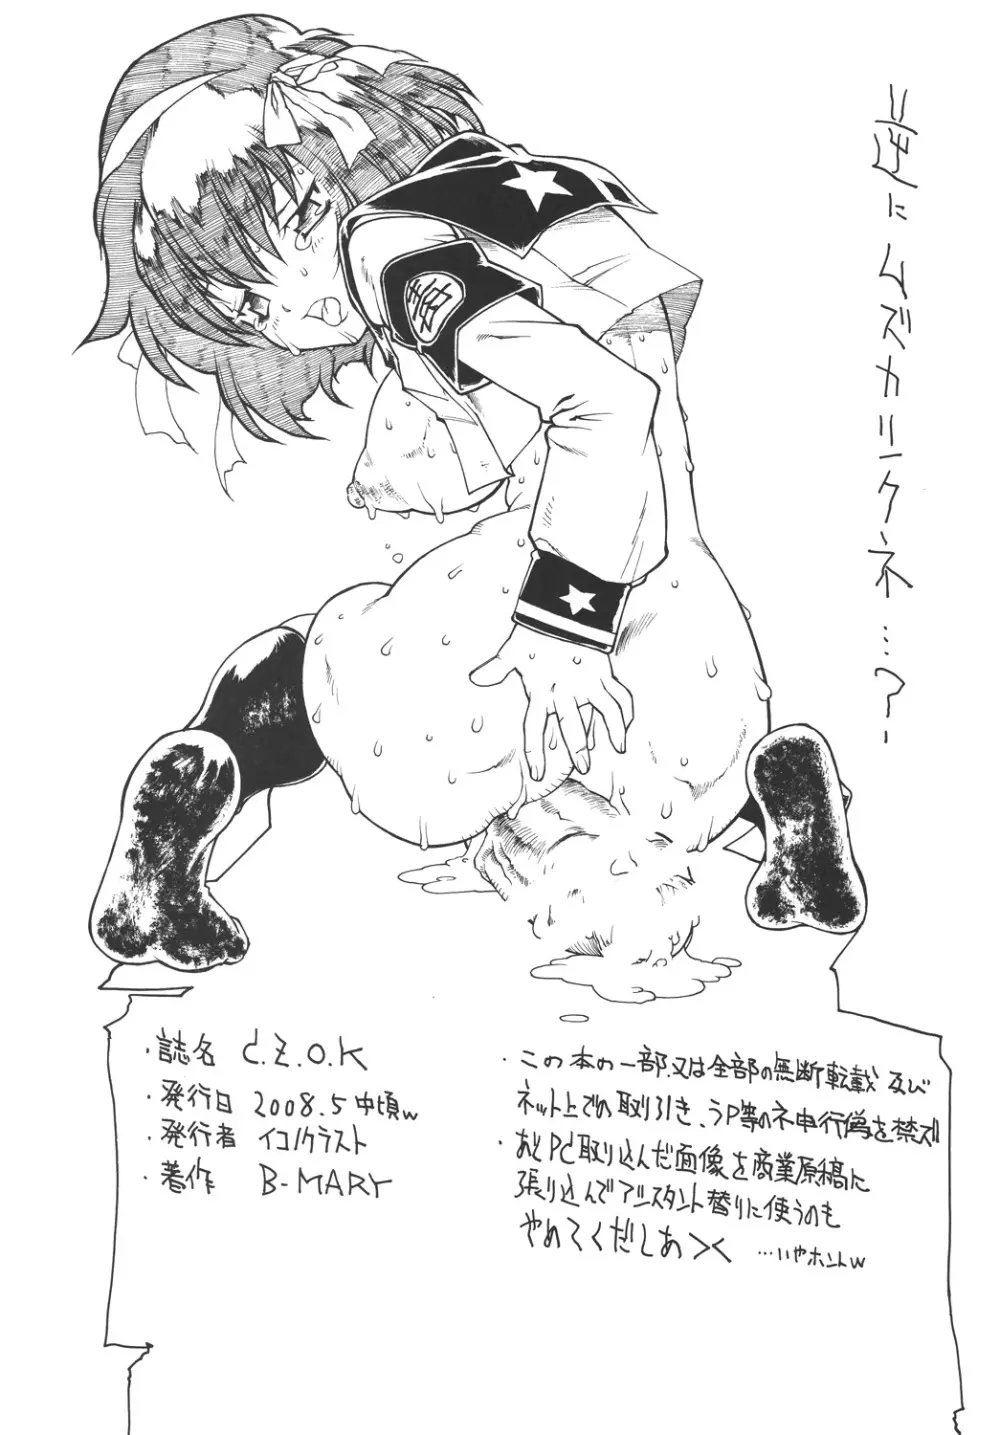 逆にムズカリィケネ…?
・誌名 C.Z.O.K
・発行日 2008.5 中頃w
・発行者 イコノクラスト
・著作 B-MARY
・この本の一部.又は全部の無断転載 及び
ネット上での取り引き、うP等のネ申行為を禁ズ
・あとPC取り込んだ画像を商業原稿に
張り込んでアシスタント替りに使うのも
やめてくだしあ><　…いやホントw